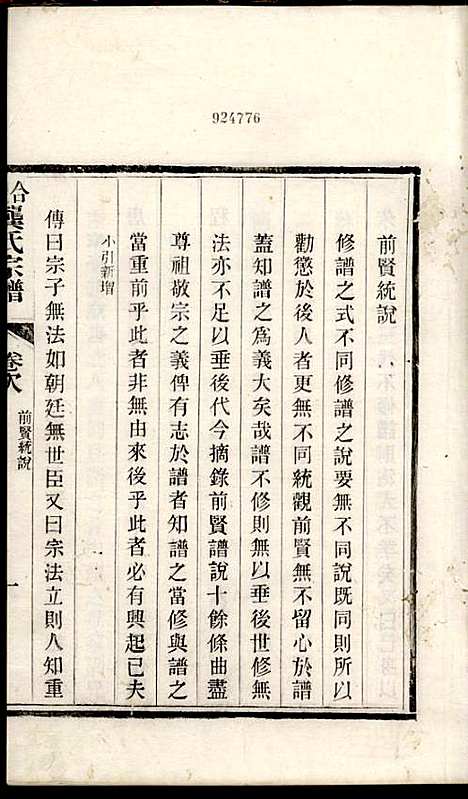 924776
前賢統說
修譜之式不同修譜之說要無不同說既同則所以
勸懲於後人者更無不同統觀前賢無不留心於譜
蓋知譜之為義大矣哉譜不修則無以垂後世修無
法亦不足以垂後代今摘錄前賢譜說十餘條曲盡
尊祖敬宗之義俾有志於譜者知譜之當修與譜之
當重前乎此者非無由來後乎此者必有興起已夫
小引新增
傳曰宗子無法如朝廷無世臣又曰宗法立則人知重
龔氏宗譜
前賢統說
一